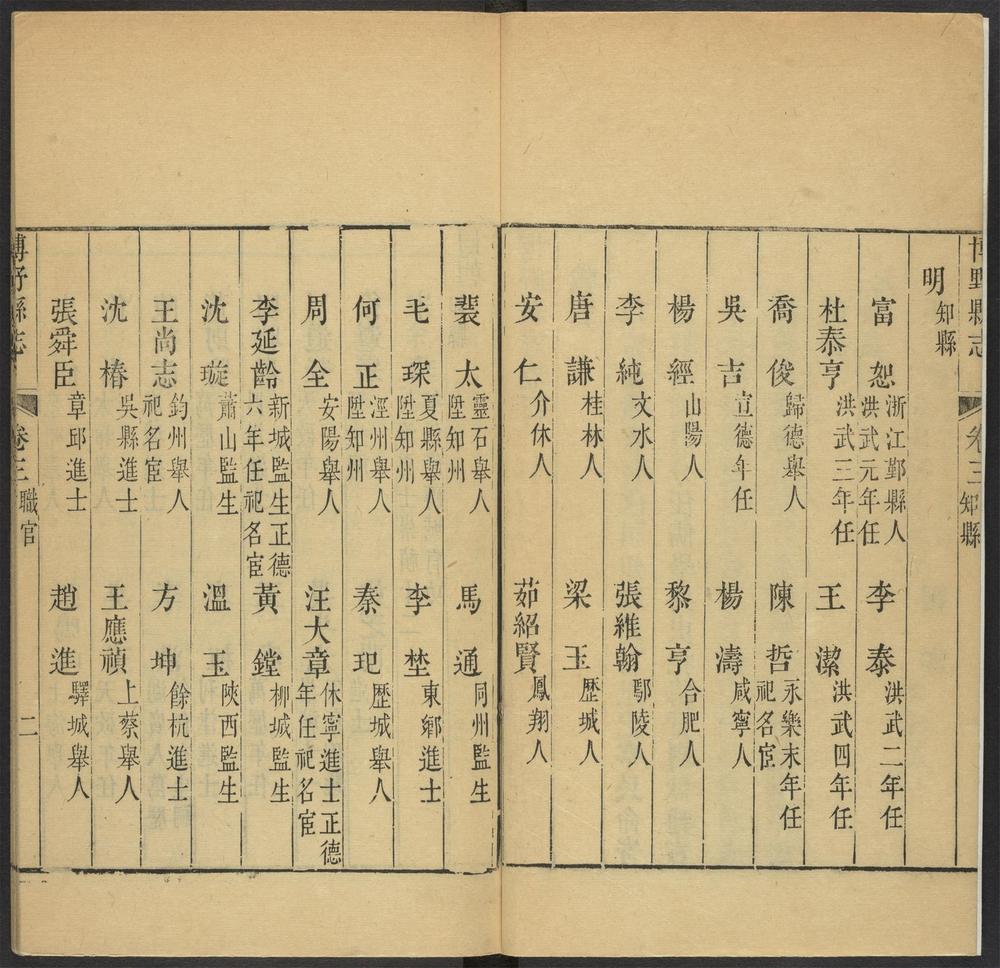 博野縣志 卷三 知縣
明 知縣
富恕 浙江鄞縣人洪武元年任 李泰 洪武二年任
杜泰亨 洪武三年任 王潔 洪武四年任
喬俊 歸德舉人 陳哲 永樂末年任祀名宦
吳吉 宣德年任 楊濤 咸寧人
楊經 山陽人 黎亨 合肥人
李純 文水人 張維翰 鄢陵人
唐謙 桂林人 梁玉 歷城人
安仁 介休人 茹紹賢 鳳翔人
裴太 靈石舉人陞知州 馬通 同州監生
毛琛 夏縣舉人陞知州 李埜 東鄉進士
何正 涇州舉人陞知州 秦玘 歷城舉人
周全 安陽舉人 汪大章 休寧進士正德年任祀名宦
李延齡 新城監生正德六年任祀名宦 黃鏜 柳城監生
沈璇 蕭山監生 溫玉 陝西監生
王尚志 鈞州舉人祀名宦 方坤 餘杭進士
沈椿 吳縣進士 王應禎 上蔡舉人
張舜臣 章邱進士 趙進 驛城舉人
博野縣志 卷三 職官 二